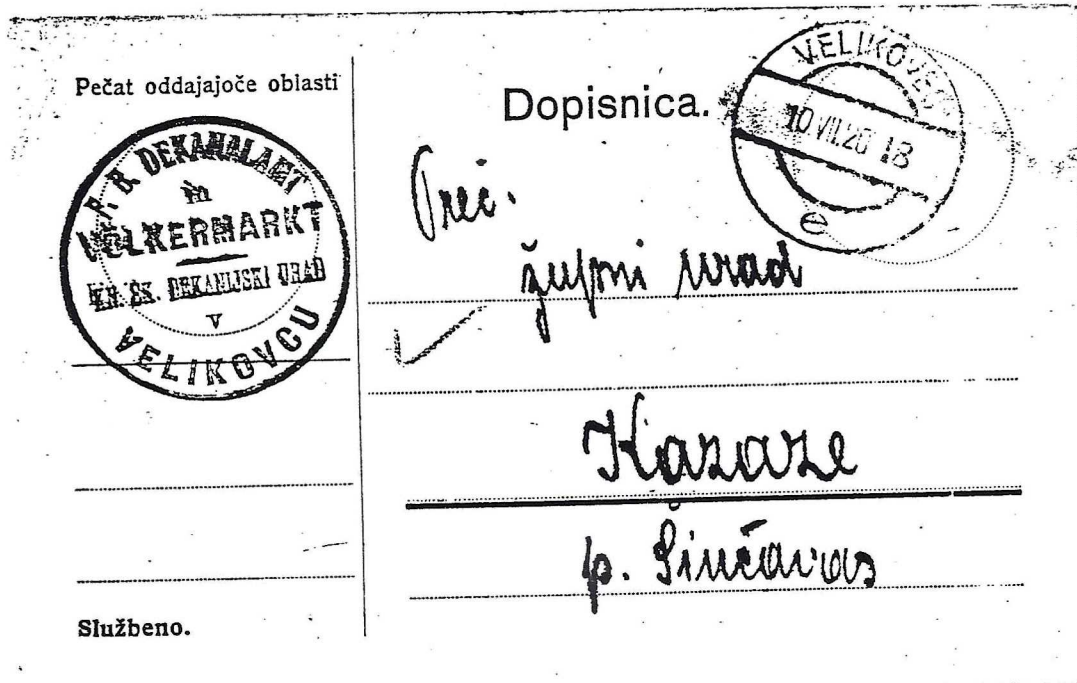 Pečat oddajajoče oblasti
F. B. DEKANALAMT
in
VÖLKERMARKT
KN. ŠK. DEKANIJSKI URAD
V
VELIKOVCU
Službeno.
Dopisnica.
VELIKOVEC
10 VII.20 18
e
Preč.
župni urad
Kazaze
p. Sinčavas